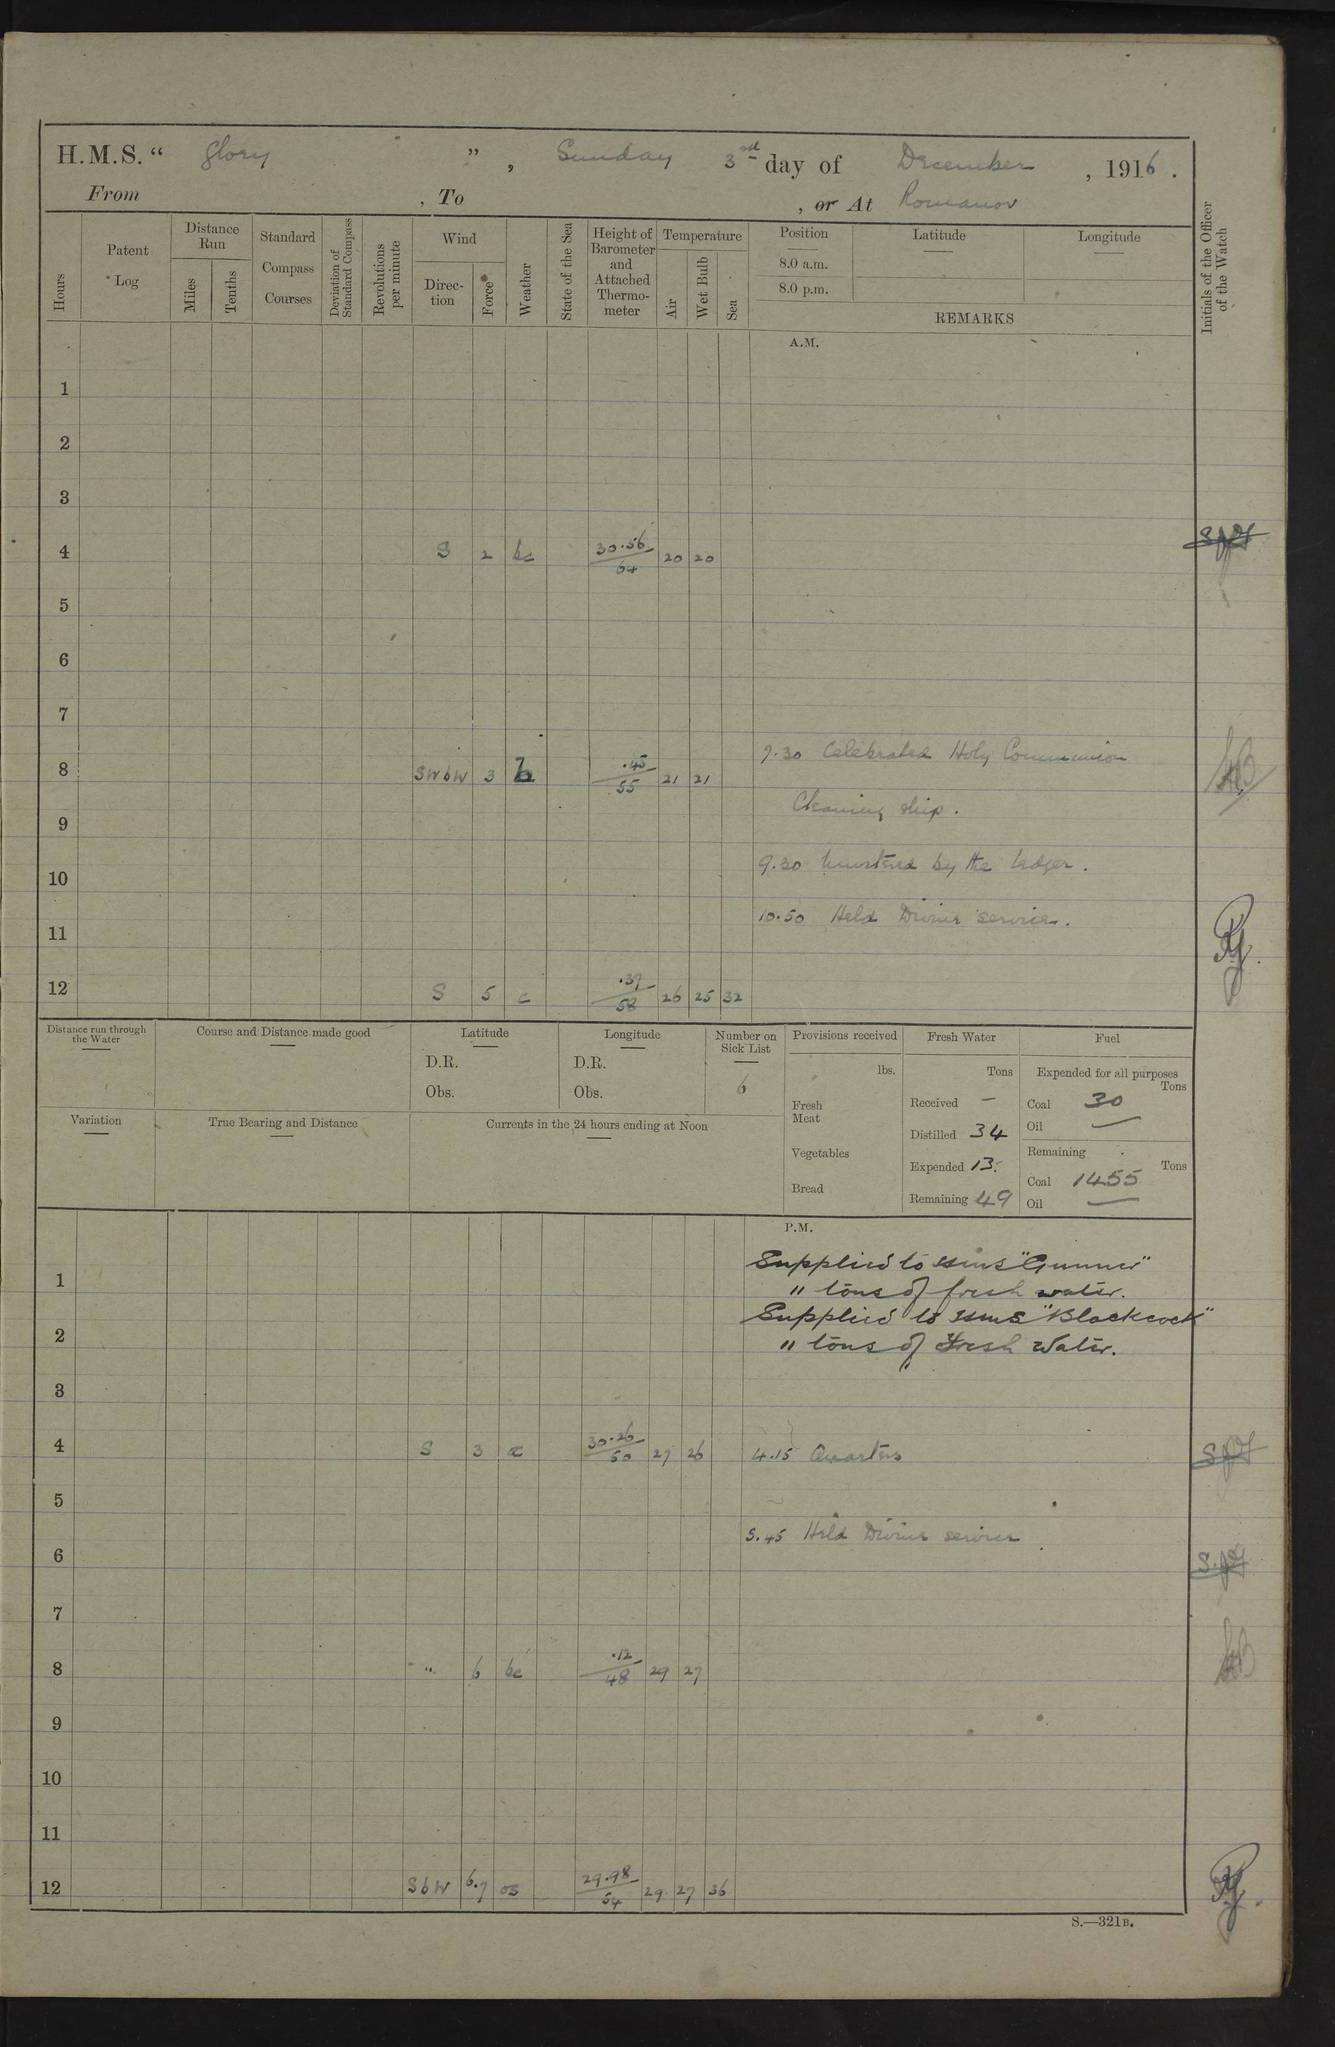 H.M.S. “ Glory ” , Sunday 3rd day of December , 1916 .
From , To , or At Romanov
Hours
Patent Log
Distance Run
Miles
Tenths
Standard Compass Courses
Deviation of Standard Compass
Revolutions per minute
Wind
Direction
Force*
Weather
State of the Sea
Height of Barometer and Attached Thermometer
Temperature
Air
Wet Bulb
Sea
Position
8.0 a.m.
8.0 p.m.
Latitude
Longitude
REMARKS
Initials of the Officer of the Watch
A.M.
1
2
3
4 S 2 bc 30.56/64 20 20
5
6
7
7.30 Celebrated Holy Communion
8 SWbW 3 b .45/55 21 21
Cleaning ship.
9
9.30 Mustered by the Ledger.
10
10.50 Held Divine service.
11
12 S 5 c .37/58 26 25 32
Distance run through the Water
Course and Distance made good
Latitude
D.R.
Obs.
Longitude
D.R.
Obs.
Number on Sick List
6
Variation
True Bearing and Distance
Currents in the 24 hours ending at Noon
Provisions received
lbs.
Fresh Meat
Vegetables
Bread
Fresh Water
Tons
Received –
Distilled 34
Expended 13.
Remaining 49
Fuel
Expended for all purposes
Tons
Coal 30
Oil —
Remaining
Tons
Coal 1455
Oil —
P.M.
Supplied to HMS "Gunner"
1 11 tons of fresh water.
Supplied to HMS "Blackcock"
2 11 tons of Fresh Water.
3
4 S 3 c 30.26/50 27 26 4.15 Quarters
5
5.45 Held Divine service
6
7
8 " 6 bc .12/48 29 27
9
10
11
12 SbW 6.7 os 29.98/54 29 27 36
S.—321B.